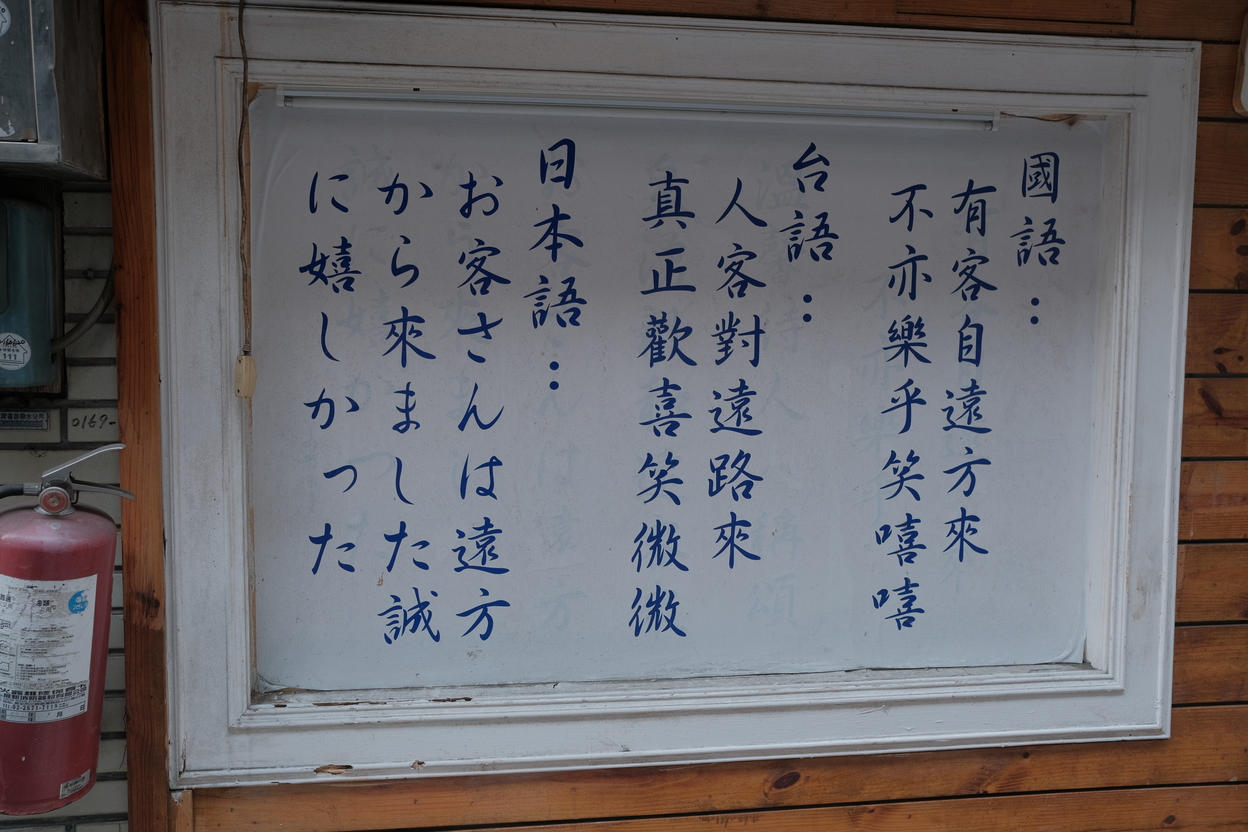 國語：
有客自遠方來
不亦樂乎笑嘻嘻
台語：
人客對遠路來
真正歡喜笑微微
日本語：
お客さんは遠方
から來ました誠
に嬉しかった
0169-
111